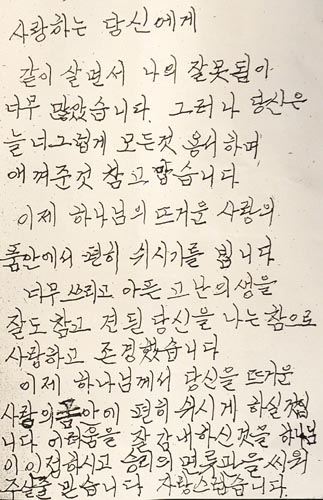 사랑하는 당신에게
같이 살면서 나의 잘못됨이
너무 많았습니다. 그러나 당신은
늘 너그럽게 모든것 용서하며
애껴준것 참 고맙습니다
이제 하나님의 뜨거운 사랑의
품안에서 편히 쉬시기를 빕니다
너무 쓰리고 아픈 고난의 생을
잘도 참고 견딘 당신을 나는 참으로
사랑하고 존경했습니다
이제 하나님께서 당신을 뜨거운
사랑의 품안에 편히 쉬시게 하실것입
니다 어려움을 잘 감내하신것을 하나님
이 인정하시고 승리의 면류관을 씌워
주실줄 믿습니다 자랑스럽습니다